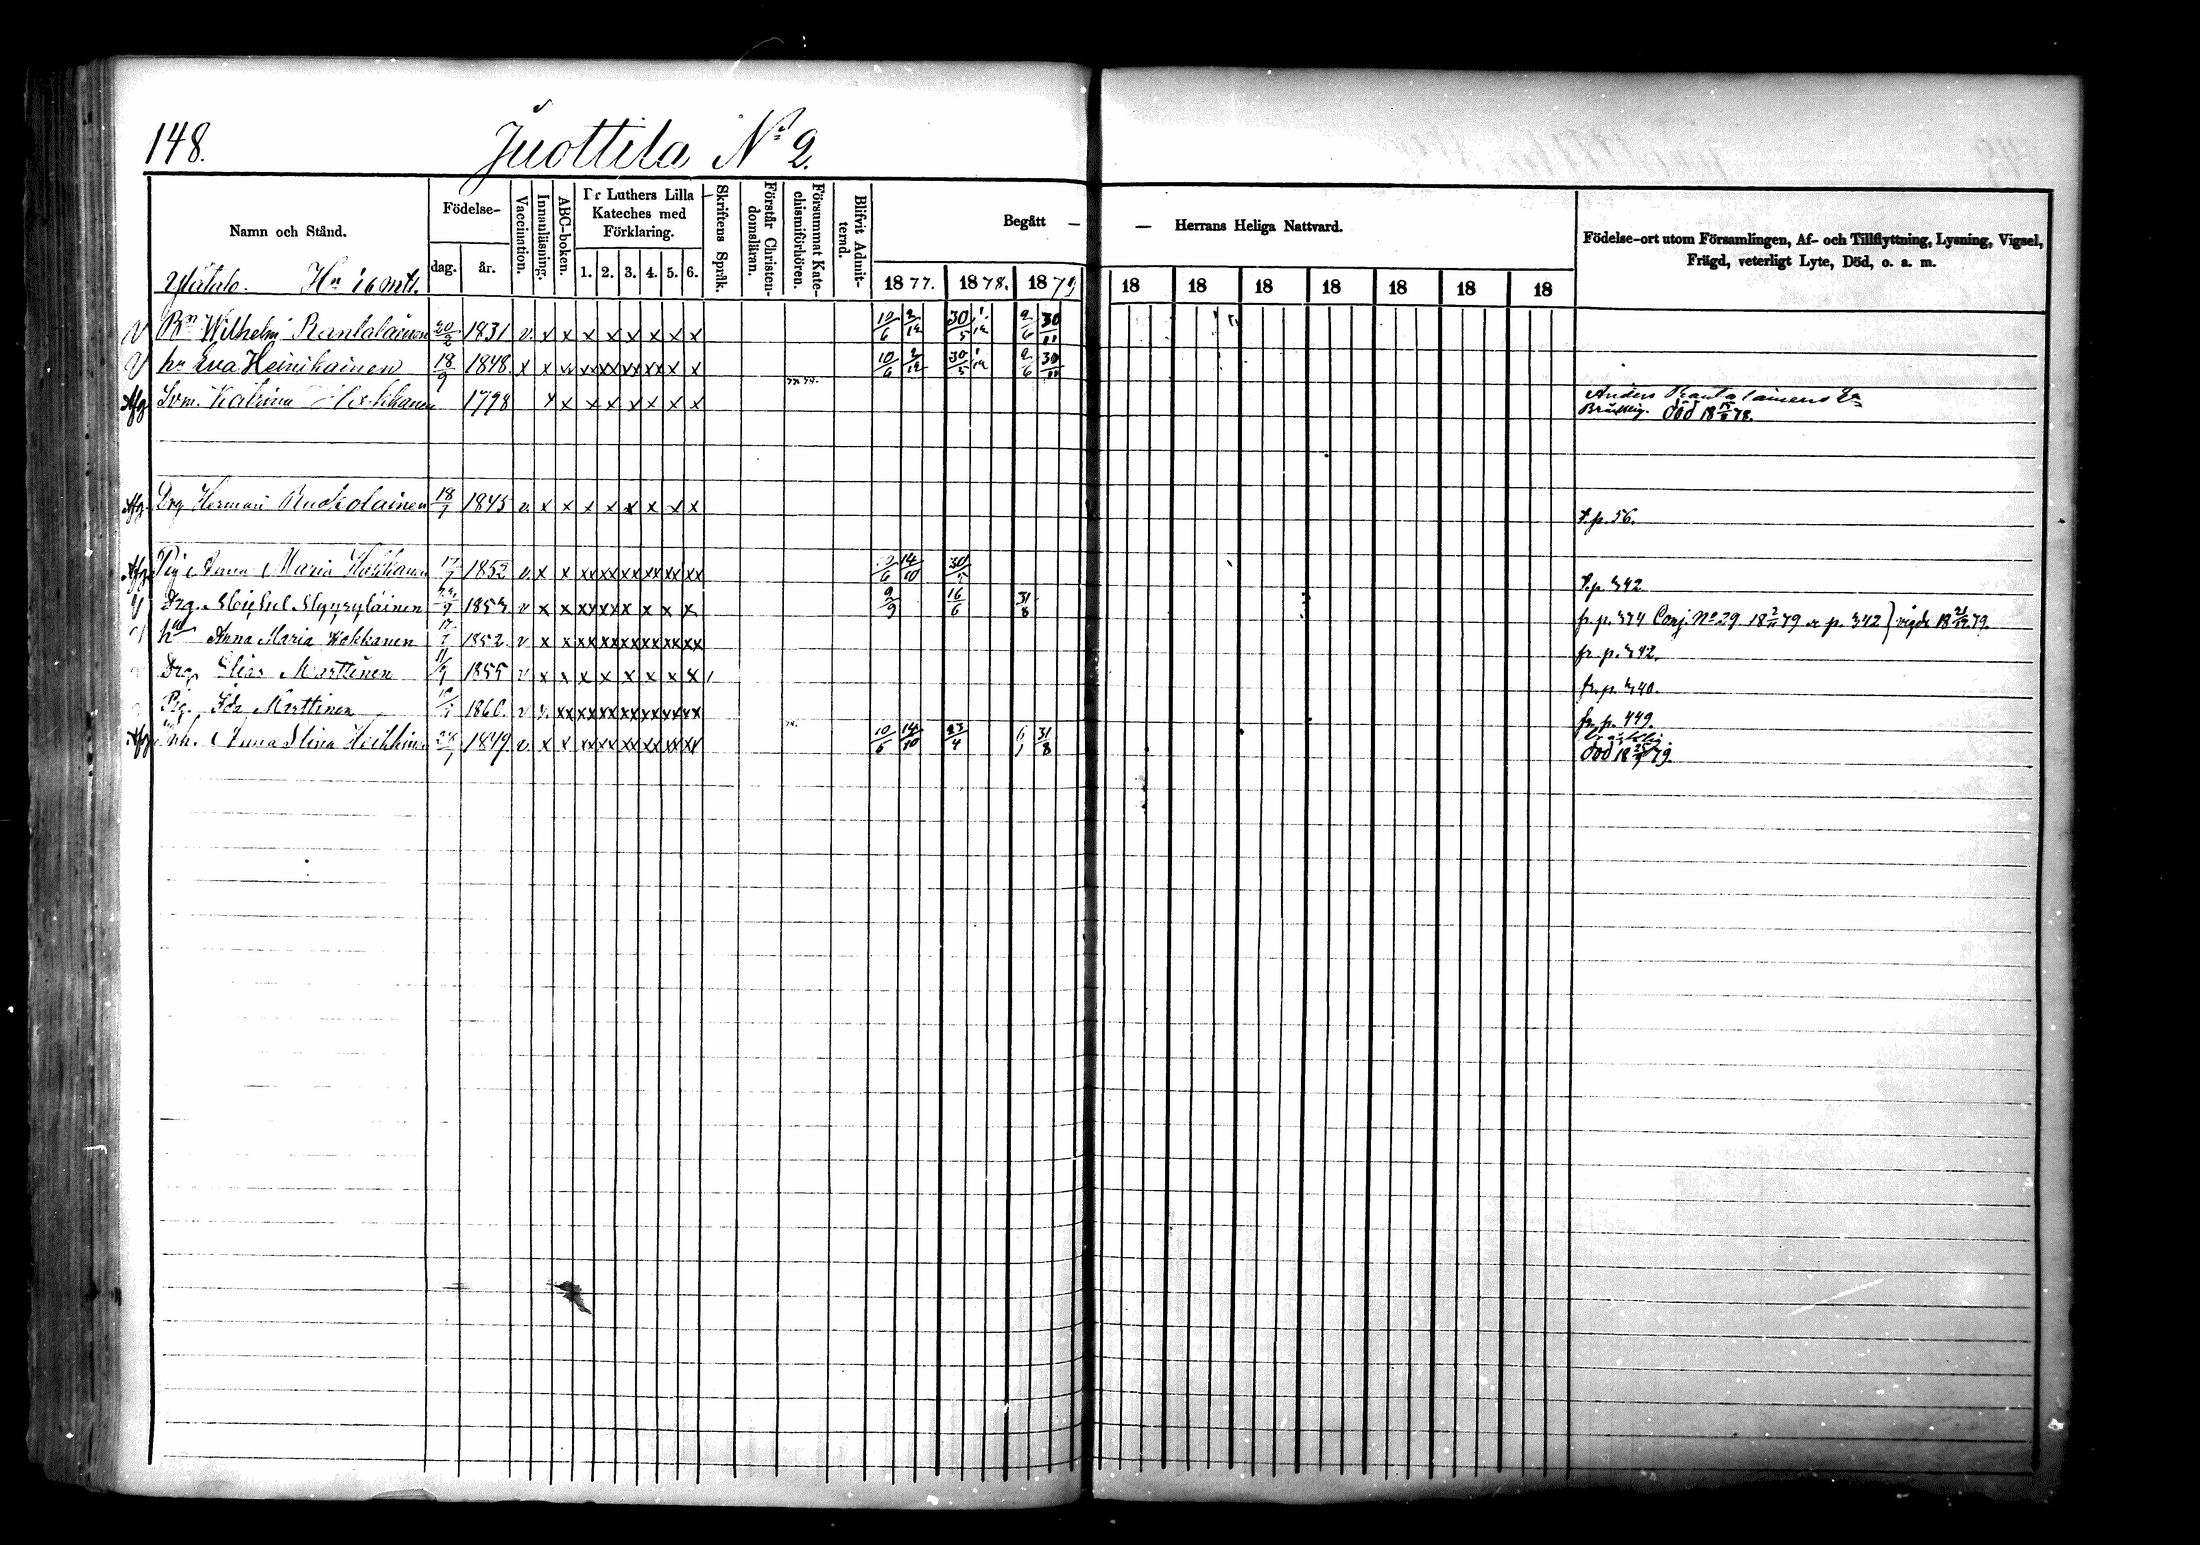 148.
Juottila No 2.
Namn och Stånd.
Födelse-
dag.
år.
Vaccination.
Innanläsning.
ABC-boken.
Dr Luthers Lilla
Kateches med
Förklaring.
1. 2. 3. 4. 5. 6.
Skriftens Språk.
Förstår Christen-
domsläran.
Försummat Kate-
chismiförhören.
Blifvit Admit-
ternd.
Begått — — Herrans Heliga Nattvard.
1877. 1878. 1879 18 18 18 18 18 18 18
Födelse-ort utom Församlingen, Af- och Tillflyttning, Lysning, Vigsel,
Frägd, veterligt Lyte, Död, o. a. m.
Ylätalo. Hn
Bn Wilhelm Rantalainen 20/2 1831 v. x x x x x x x x 10/6 2/12 30/5 1/12 2/6 30/11
hu Eva Heinikainen 18/9 1848 x x x xx xx xx xx x x 10/6 2/12 30/5 1/12 2/6 30/11
Katrina 1798 x x x x x x x x Anders Rantalainens
Bräcklig. död 18 78.
Drg Herman Ruokolainen 18/7 1845 v. x x x x x x x x t.p. 56.
Pig. Anna Maria Hokkanen 17/7 1852 v. x x xx xx xx xx xx xx 14/10 30/5 t.p. 342
Drg. Michel Myyryläinen 1853 v x x xx xx x x x x 9/9 16/6 31/8 fr. p. 374 Conj. No 29. 18 79 p. 342) vigde 18 79.
hu Anna Maria Hokkanen 17/7 1852. v x x xx xx xx xx xx xx fr. p. 342.
Drg Elias Marttinen 1855 v x x x x x x x x fr. p. 340.
Pig. Ida Marttinen 1860. v x. xx xx xx xx xx xx xx fr. p. 449.
Anna Stina 1849 v. x x xx xx xx xx xx xx 10/6 14/10 23/4 31/8
död 18 79.